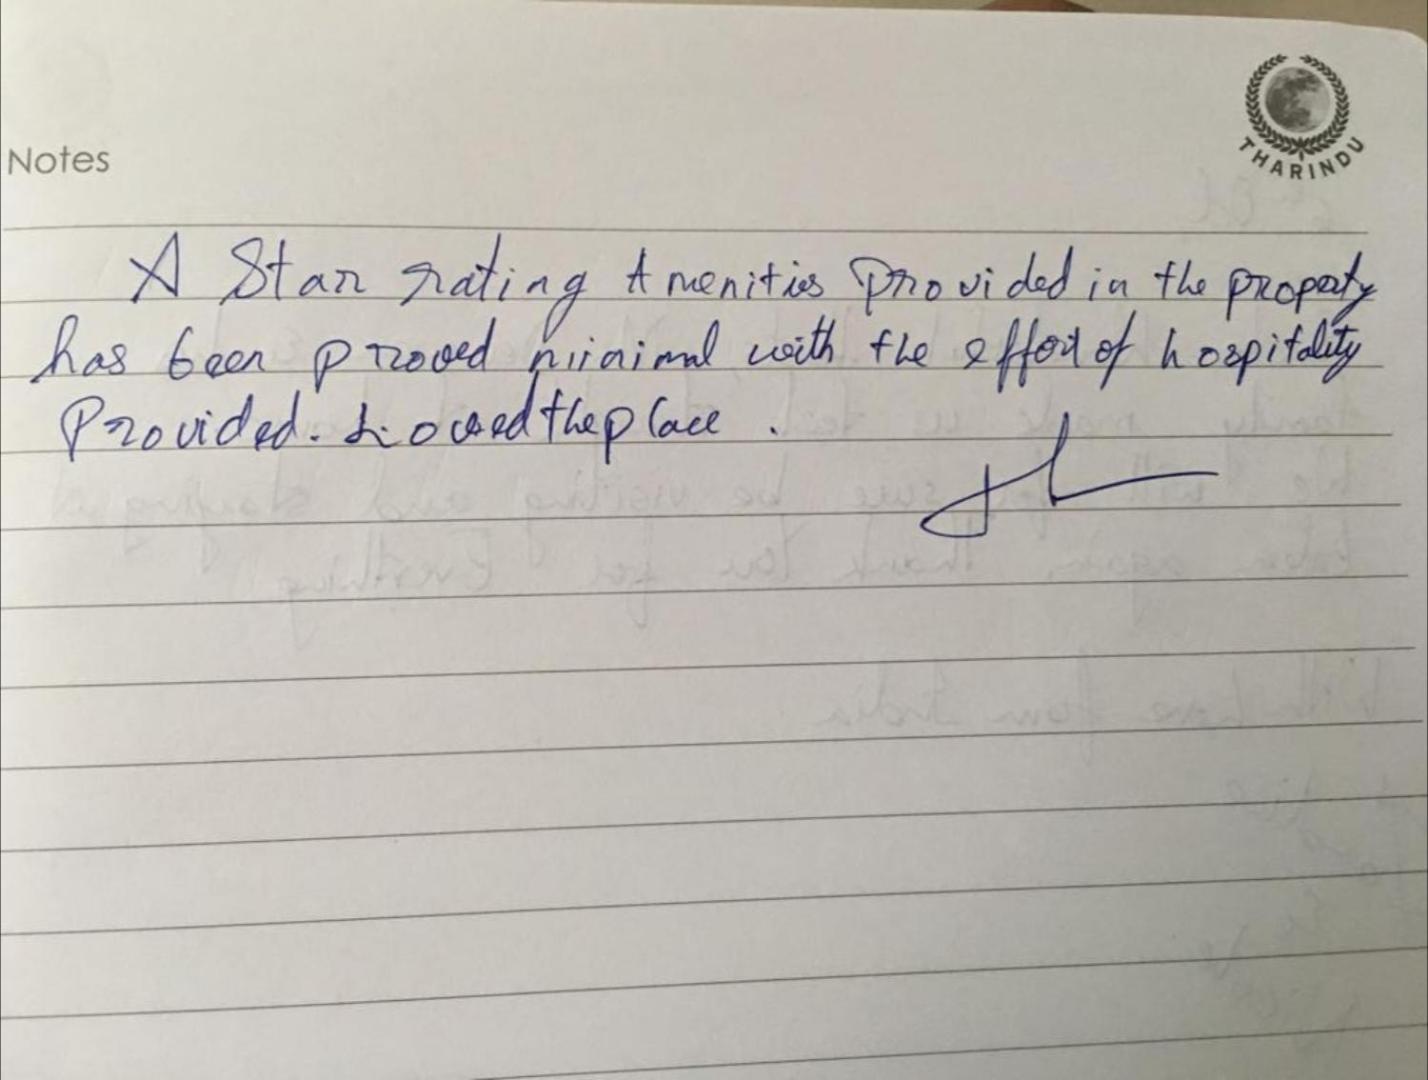 THARINDU
Notes
A Star rating Amenities Provided in the property
has been proved minimal with the effort of hospitality
Provided. Loved the place .